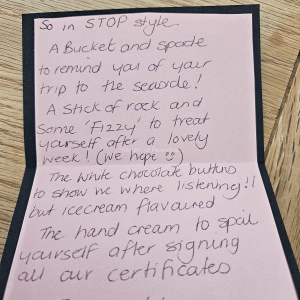 So in STOP style.
A Bucket and spade
to remind you of your
trip to the seaside!
A stick of rock and
some 'Fizzy' to treat
yourself after a lovely
week! (we hope ☺)
The white chocolate buttons
to show we where listening!!
but icecream flavoured
The hand cream to spoil
yourself after signing
all our certificates